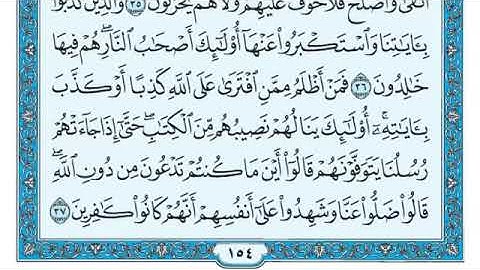 ٱتَّقَىٰ وَأَصْلَحَ فَلَا خَوْفٌ عَلَيْهِمْ وَلَا هُمْ يَحْزَنُونَ ٣٥ وَٱلَّذِينَ كَذَّبُوا۟
بِـَٔايَـٰتِنَا وَٱسْتَكْبَرُوا۟ عَنْهَآ أُو۟لَـٰٓئِكَ أَصْحَـٰبُ ٱلنَّارِ ۖ هُمْ فِيهَا
خَـٰلِدُونَ ٣٦ فَمَنْ أَظْلَمُ مِمَّنِ ٱفْتَرَىٰ عَلَى ٱللَّهِ كَذِبًا أَوْ كَذَّبَ
بِـَٔايَـٰتِهِۦٓ ۚ أُو۟لَـٰٓئِكَ يَنَالُهُمْ نَصِيبُهُم مِّنَ ٱلْكِتَـٰبِ ۖ حَتَّىٰٓ إِذَا جَآءَتْهُمْ
رُسُلُنَا يَتَوَفَّوْنَهُمْ قَالُوٓا۟ أَيْنَ مَا كُنتُمْ تَدْعُونَ مِن دُونِ ٱللَّهِ ۖ
قَالُوا۟ ضَلُّوا۟ عَنَّا وَشَهِدُوا۟ عَلَىٰٓ أَنفُسِهِمْ أَنَّهُمْ كَانُوا۟ كَـٰفِرِينَ ٣٧
١٥٤